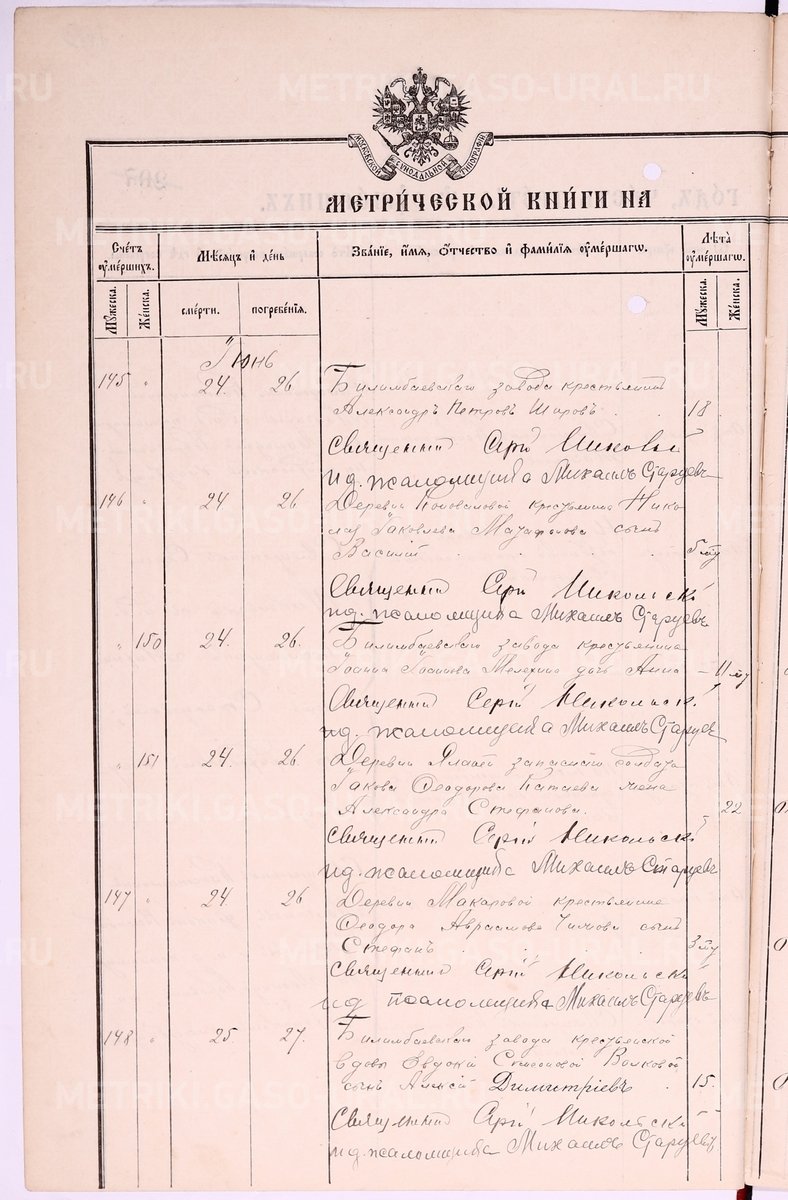 МОСКОВСКОЙ СѴНОДАЛЬНОЙ ТИПОГРАФІИ
МЕТРИ́ЧЕСКОЙ КНИ́ГИ НА
Сче́тъ оумéршихъ.
Мѣсяцъ и де́нь
Зва́нїе, и́мя, ѻ́тчество и фами́лїя оуме́ршагѡ.
Лѣта̀ оуме́ршагѡ.
Мꙋжеска.
Же́нска.
сме́рти.
погребе́нїя.
Мꙋжеска.
Же́нска.
Іюнь
145 " 24. 26 Билимбаевскаго завода крестьянинъ
Александръ Петровъ Шировъ . . 18
Священникъ Сергій Никольскій
и д. псаломщика Михаилъ Старцевъ
146 " 24 26 Деревни Коноваловой крестьянина Нико
лая Яковлева сынъ
Василій . . . . 5 мц
Священникъ Сергій Никольскій
и д. псаломщика Михаилъ Старцевъ
" 150 24. 26. Билимбаевскаго завода крестьянина
Іоанна Іоаннова Мелехина дочь Анна – 11 мц
Священникъ Сергій Никольскій
и д. псаломщика Михаилъ Старцевъ
" 151 24. 26. Деревни запаснаго солдата
Іакова Ѳеодорова Катаева жена
Александра Стефанова. 22
Священникъ Сергій Никольскій
и д. псаломщика Михаилъ Старцевъ
147 " 24 26 Деревни Макаровой крестьянина
Ѳеодора Авраамова сынъ
Стефанъ . . . . 3 мц
Священникъ Сергій Никольскій
и д псаломщика Михаилъ Старцевъ
148 " 25 27. Билимбаевскаго завода крестьянской
вдовы Евдокіи Симеоновой Волковой
сынъ Алексій Димитріевъ . 15.
Священникъ Сергій Никольскій
и д. псаломщика Михаилъ Старцевъ
METRIKI.GASO-URAL.RU